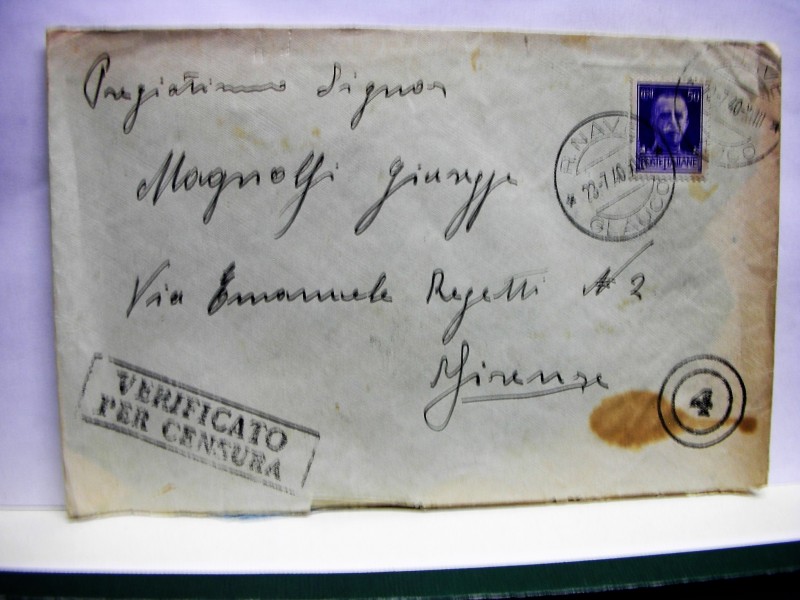 Pregiatissimo Signor
Magnolfi Giuseppe
Via Emanuele Repetti N 2
Firenze
50
POSTE ITALIANE
R. NAV
GLAUCO
VERIFICATO
PER CENSURA
4